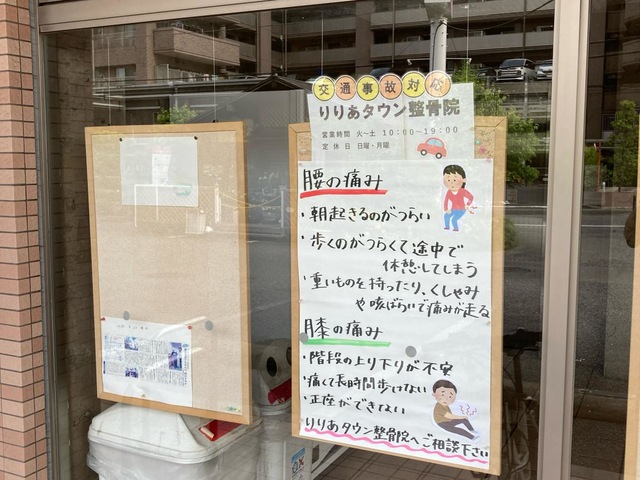 交通事故対応
りりあタウン整骨院
営業時間 火〜土 10:00〜19:00
定休日 日曜・月曜
腰の痛み
・朝起きるのがつらい
・歩くのがつらくて途中で
休憩してしまう
・重いものを持ったり、くしゃみ
や咳ばらいで痛みが走る
膝の痛み
・階段の上り下りが不安
・痛くて長時間歩けない
・正座ができない
りりあタウン整骨院へご相談下さい